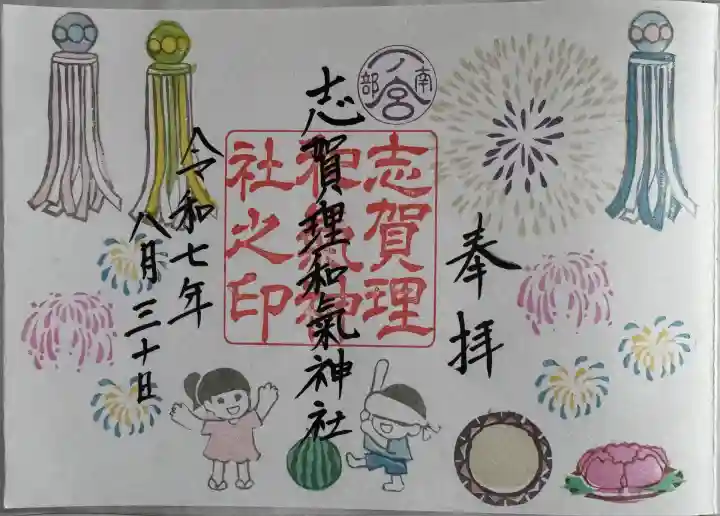 奉拝
一ノ宮
南部
志賀理和氣神社
志賀理
和氣神
社之印
令和七年
八月三十日